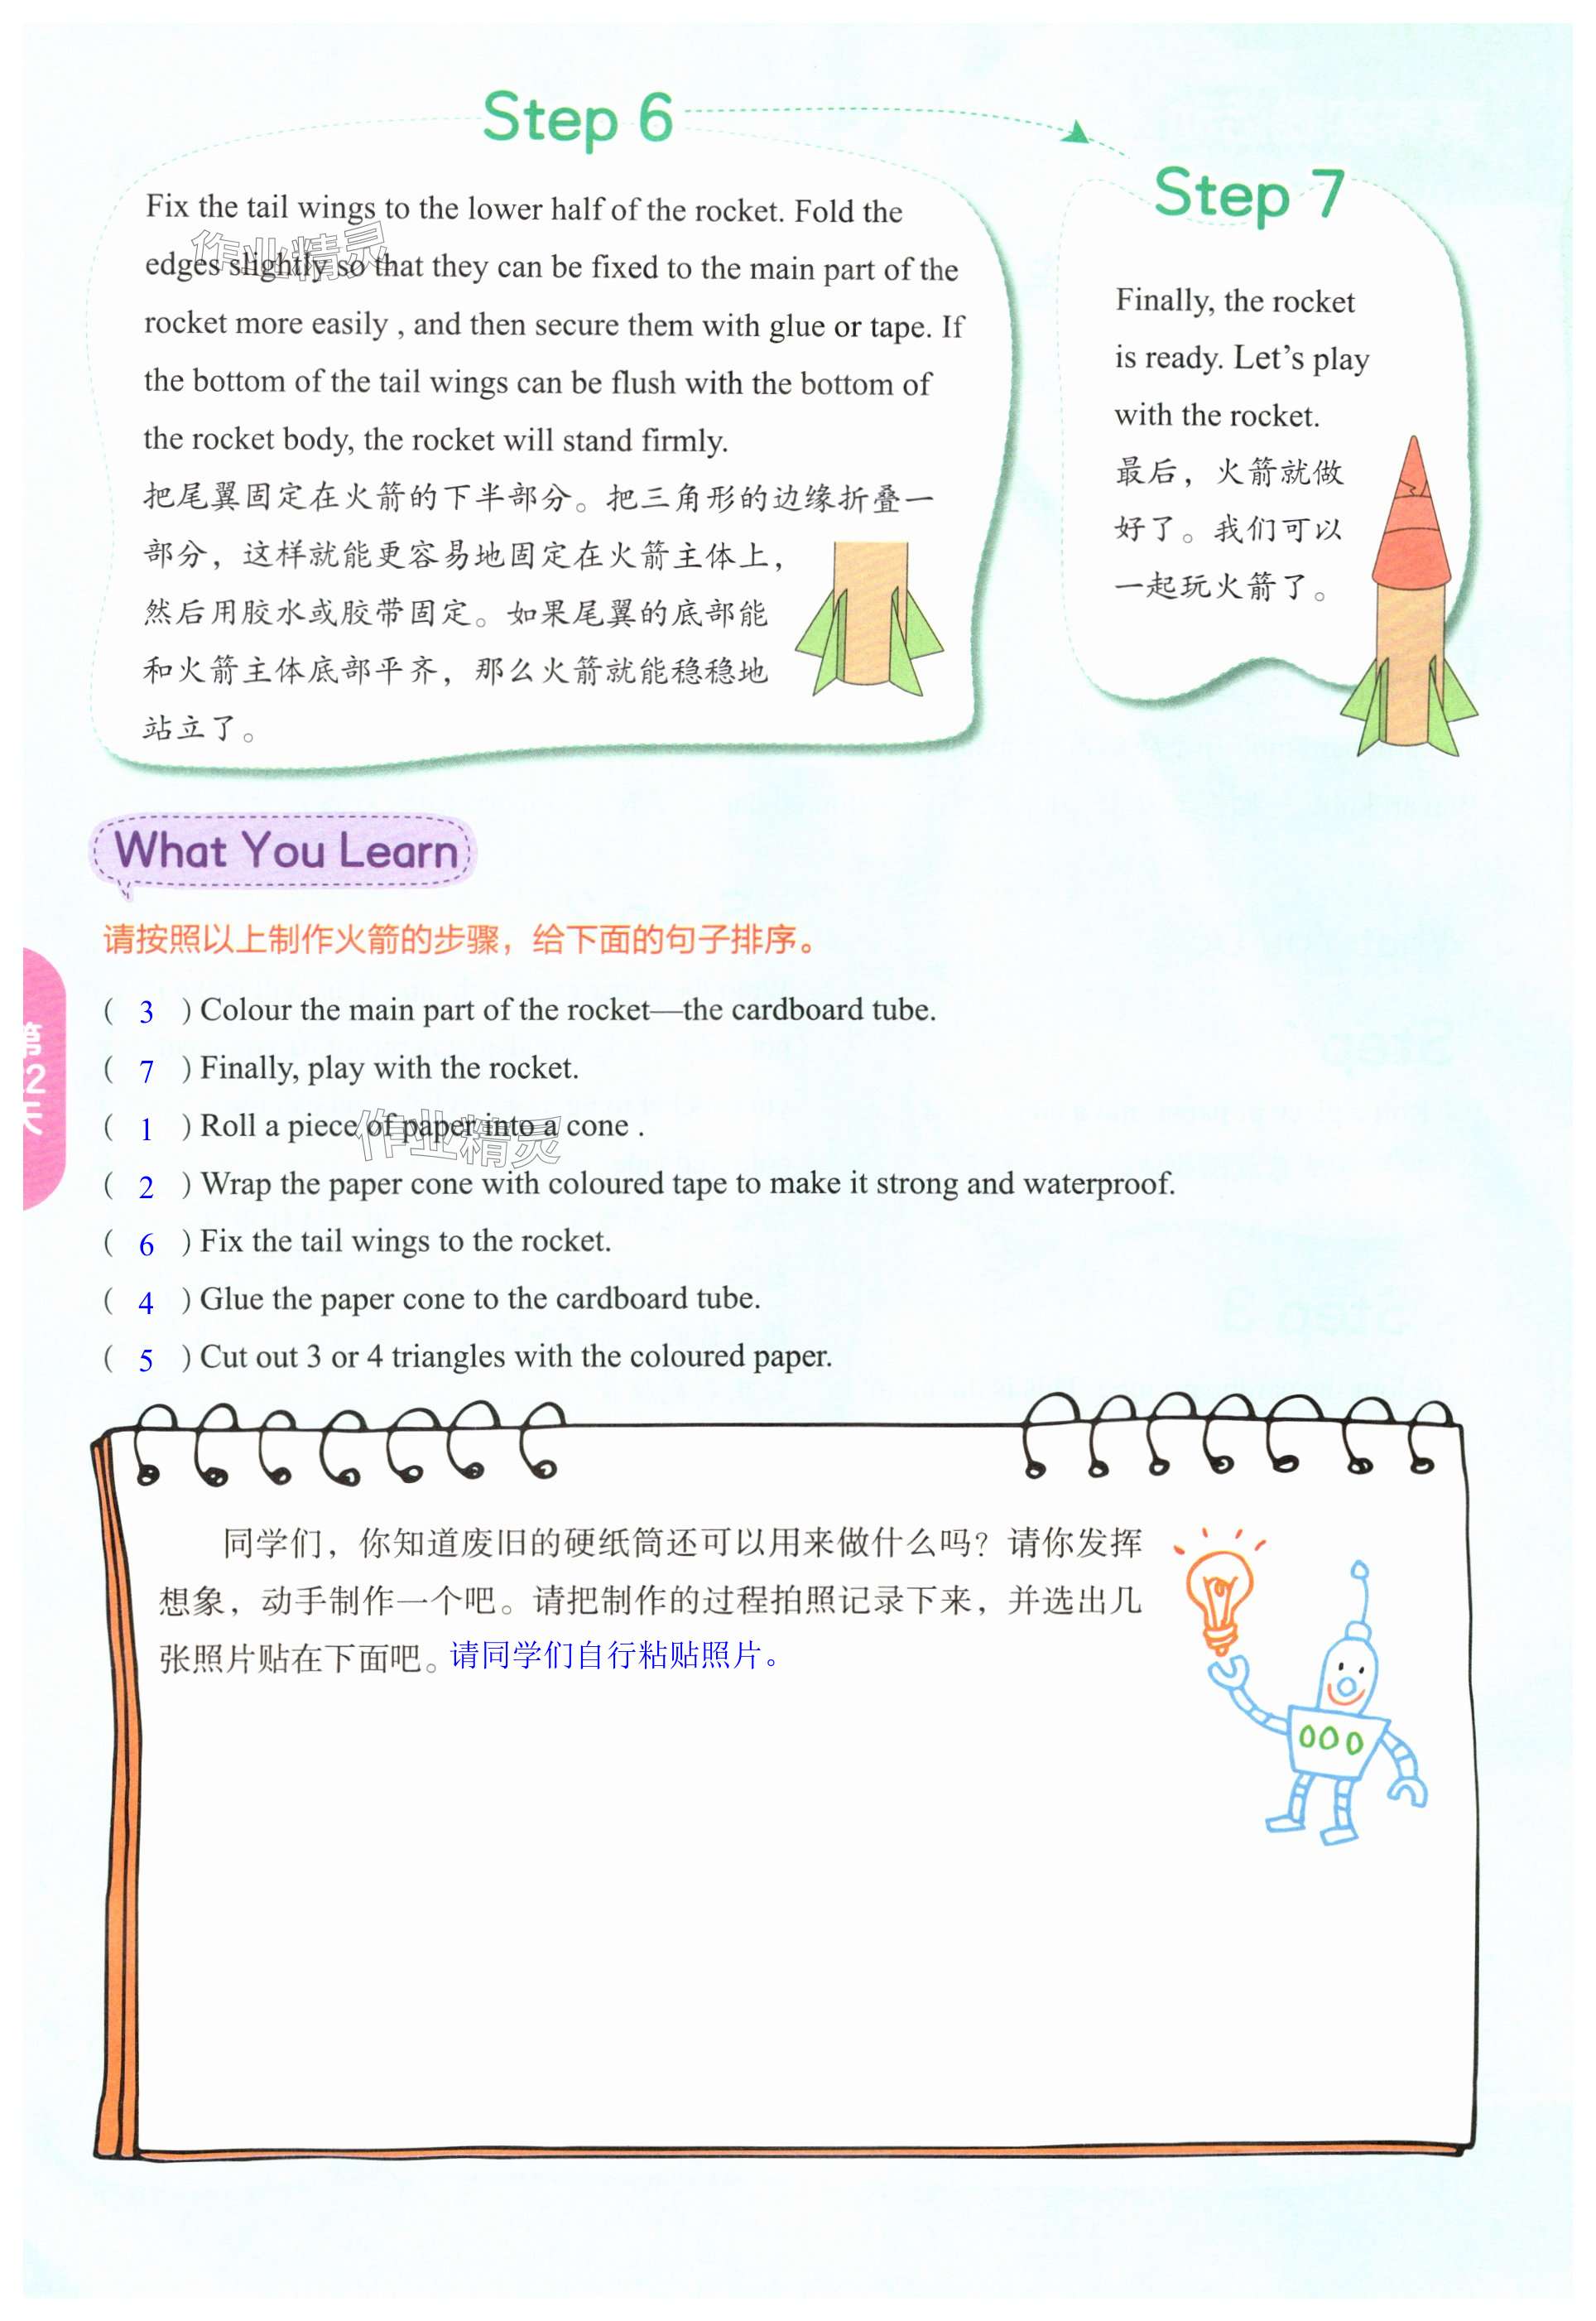 Step 6
Fix the tail wings to the lower half of the rocket. Fold the
edges slightly so that they can be fixed to the main part of the
rocket more easily , and then secure them with glue or tape. If
the bottom of the tail wings can be flush with the bottom of
the rocket body, the rocket will stand firmly.
把尾翼固定在火箭的下半部分。把三角形的边缘折叠一
部分，这样就能更容易地固定在火箭主体上，
然后用胶水或胶带固定。如果尾翼的底部能
和火箭主体底部平齐，那么火箭就能稳稳地
站立了。
作业精灵
Step 7
Finally, the rocket
is ready. Let’s play
with the rocket.
最后，火箭就做
好了。我们可以
一起玩火箭了。
What You Learn
请按照以上制作火箭的步骤，给下面的句子排序。
( 3 ) Colour the main part of the rocket—the cardboard tube.
( 7 ) Finally, play with the rocket.
( 1 ) Roll a piece of paper into a cone .
作业精灵
( 2 ) Wrap the paper cone with coloured tape to make it strong and waterproof.
( 6 ) Fix the tail wings to the rocket.
( 4 ) Glue the paper cone to the cardboard tube.
( 5 ) Cut out 3 or 4 triangles with the coloured paper.
第2天
同学们，你知道废旧的硬纸筒还可以用来做什么吗？请你发挥
想象，动手制作一个吧。请把制作的过程拍照记录下来，并选出几
张照片贴在下面吧。请同学们自行粘贴照片。